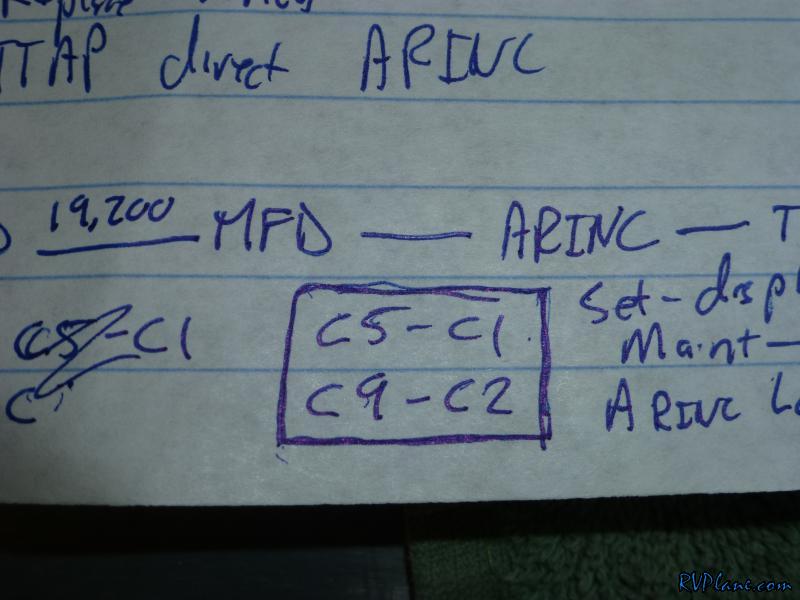 TTAP direct ARINC
19,200 MFD — ARINC — T
C5-C1
C5-C1
C9-C2
Set-displ
Maint-
ARINC Lo
RVPlane.com